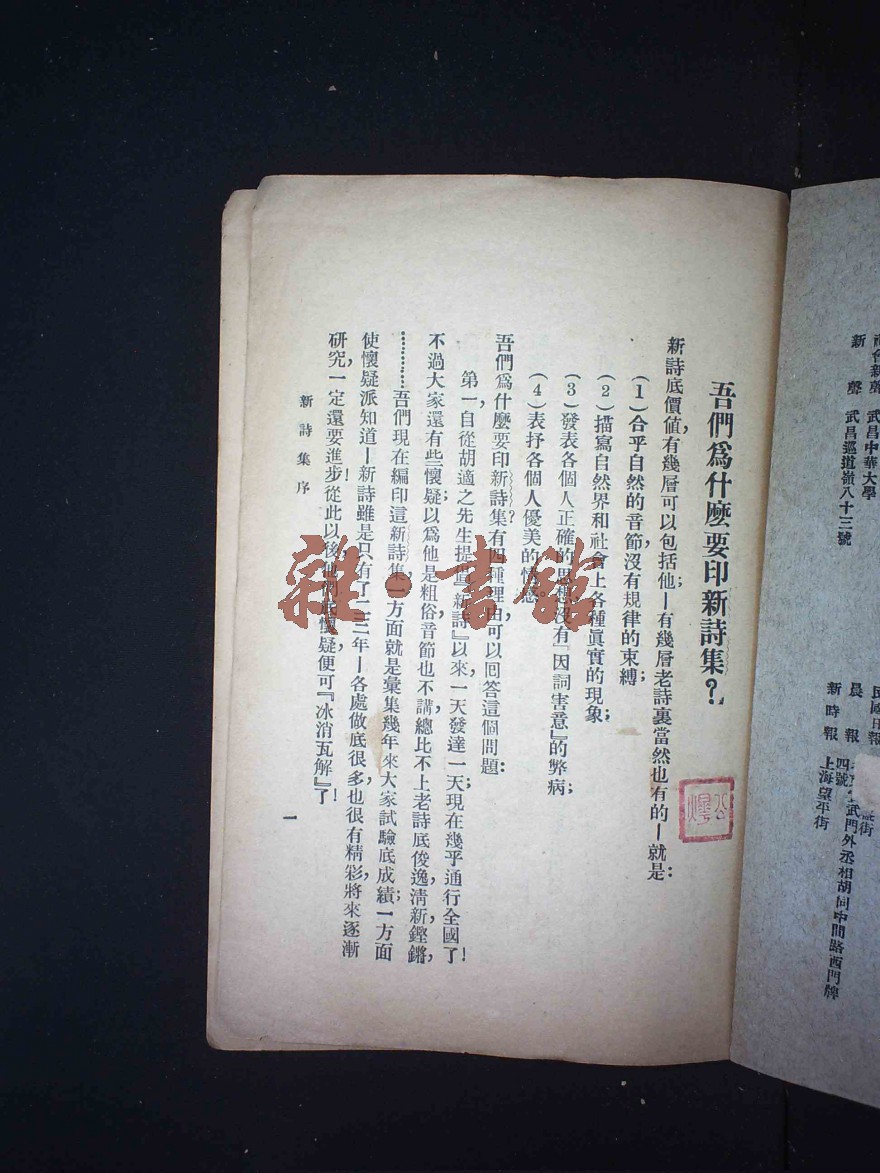 吾們爲什麽要印新詩集？
新詩底價値，有幾層可以包括他—有幾層老詩裏當然也有的—就是：
（1）合乎自然的音節，沒有規律的束縛；
（2）描寫自然界和社會上各種眞實的現象；
（3）發表各個人正確的思想，沒有『因詞害意』的弊病；
（4）表抒各個人優美的情感。
吾們爲什麽要印新詩集？有四種理由，可以回答這個問題：
第一，自從胡適之先生提倡『新詩』以來，一天發達一天；現在幾乎通行全國了！
不過大家還有些懷疑；以爲他是粗俗，音節也不講，總比不上老詩底俊逸，淸新，鏗鏘，
…………吾們現在編印這新詩集，一方面就是彙集幾年來大家試驗底成績；一方面
使懷疑派知道—新詩雖是只有了二三年—各處做底很多，也很有精彩，將來逐漸
研究，一定還要進步！從此以後，他們底懷疑，便可『冰消瓦解』了！
新詩集序
一
雜·書館
新聲 武昌中華大學
武昌巡道嶺八十三號
民國日報
晨報
武門外丞相胡同中間路西門牌
四號
新時報 上海望平街